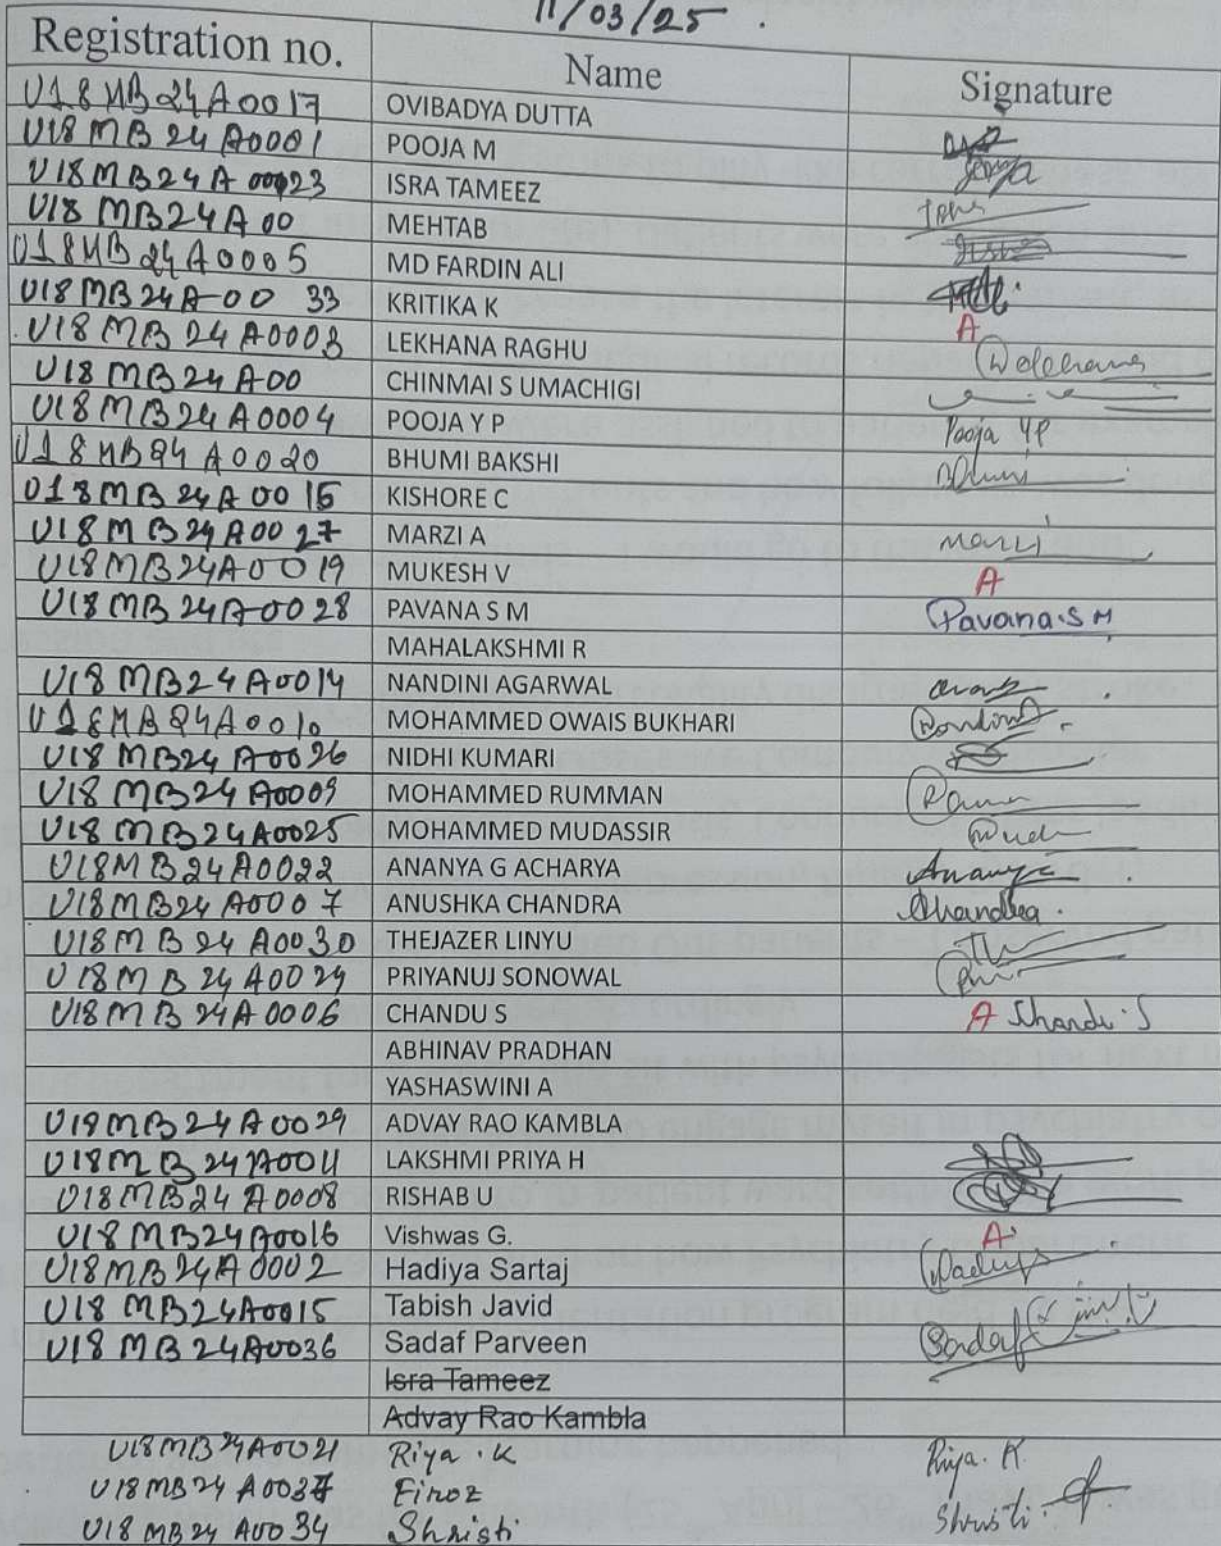 11/03/25 .
Registration no. Name Signature
U18MB24A0017 OVIBADYA DUTTA
U18MB24A0001 POOJA M Pooja
U18MB24A00023 ISRA TAMEEZ
U18MB24A00 MEHTAB
U18MB24A0005 MD FARDIN ALI
U18MB24A00 33 KRITIKA K A
U18MB24A0003 LEKHANA RAGHU
U18MB24A00 CHINMAI S UMACHIGI
U18MB24A0004 POOJA Y P Pooja YP
U18MB24A0020 BHUMI BAKSHI Bhumi
U18MB24A0015 KISHORE C
U18MB24A0027 MARZI A Marzi
U18MB24A0019 MUKESH V A
U18MB24A0028 PAVANA S M Pavana.S M
MAHALAKSHMI R
U18MB24A0014 NANDINI AGARWAL
U18MB24A0010 MOHAMMED OWAIS BUKHARI
U18MB24A0026 NIDHI KUMARI
U18MB24A0009 MOHAMMED RUMMAN
U18MB24A0025 MOHAMMED MUDASSIR
U18MB24A0022 ANANYA G ACHARYA Ananya
U18MB24A0007 ANUSHKA CHANDRA Chandra.
U18MB24A0030 THEJAZER LINYU
U18MB24A0024 PRIYANUJ SONOWAL
U18MB24A0006 CHANDU S A Chandu.S
ABHINAV PRADHAN
YASHASWINI A
U18MB24A0029 ADVAY RAO KAMBLA
U18MB24A0011 LAKSHMI PRIYA H
U18MB24A0008 RISHAB U
U18MB24A0016 Vishwas G. A
U18MB24A0002 Hadiya Sartaj Hadiya
U18MB24A0015 Tabish Javid
U18MB24A0036 Sadaf Parveen Sadaf
Isra Tameez
Advay Rao Kambla
U18MB24A0021 Riya.K Riya.K
U18MB24A0037 Firoz
U18MB24A0034 Shristi Shristi